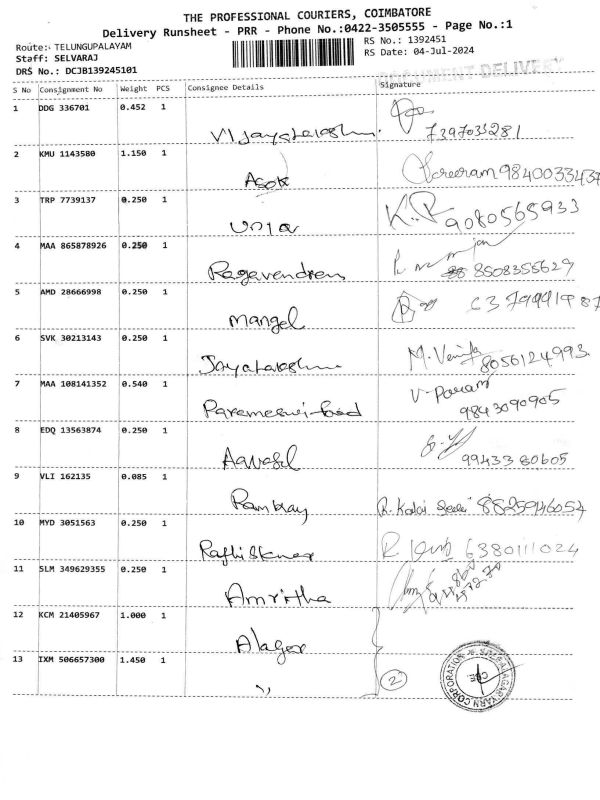 THE PROFESSIONAL COURIERS, COIMBATORE
Delivery Runsheet - PRR - Phone No.:0422-3505555 - Page No.:1
Route: TELUNGUPALAYAM
RS No.: 1392451
Staff: SELVARAJ
RS Date: 04-Jul-2024
DRS No.: DCJB139245101
DOCUMENT DELIVERY
S No Consignment No Weight PCS Consignee Details Signature
1 DDG 336701 0.452 1
Vijayalakshmi 7397033281
2 KMU 1143580 1.150 1
Asok Sreeram 9840033437
3 TRP 7739137 0.250 1
K.R 9080565933
4 MAA 865878926 0.250 1
Ragavendren 8508355629
5 AMD 28666998 0.250 1
Mangel
6 SVK 30213143 0.250 1
Jayalakshmi M. 8056124993
7 MAA 108141352 0.540 1
Parameswi food V. 9843090905
8 EDQ 13563874 0.250 1
99433 80605
9 VLI 162135 0.085 1
R. Kalai 8825946054
10 MYD 3051563 0.250 1
R 6380111024
11 SLM 349629355 0.250 1
Amritha
12 KCM 21405967 1.000 1
Alager
13 IXM 506657300 1.450 1
,, 2
YARN CORPORATION
CBE.